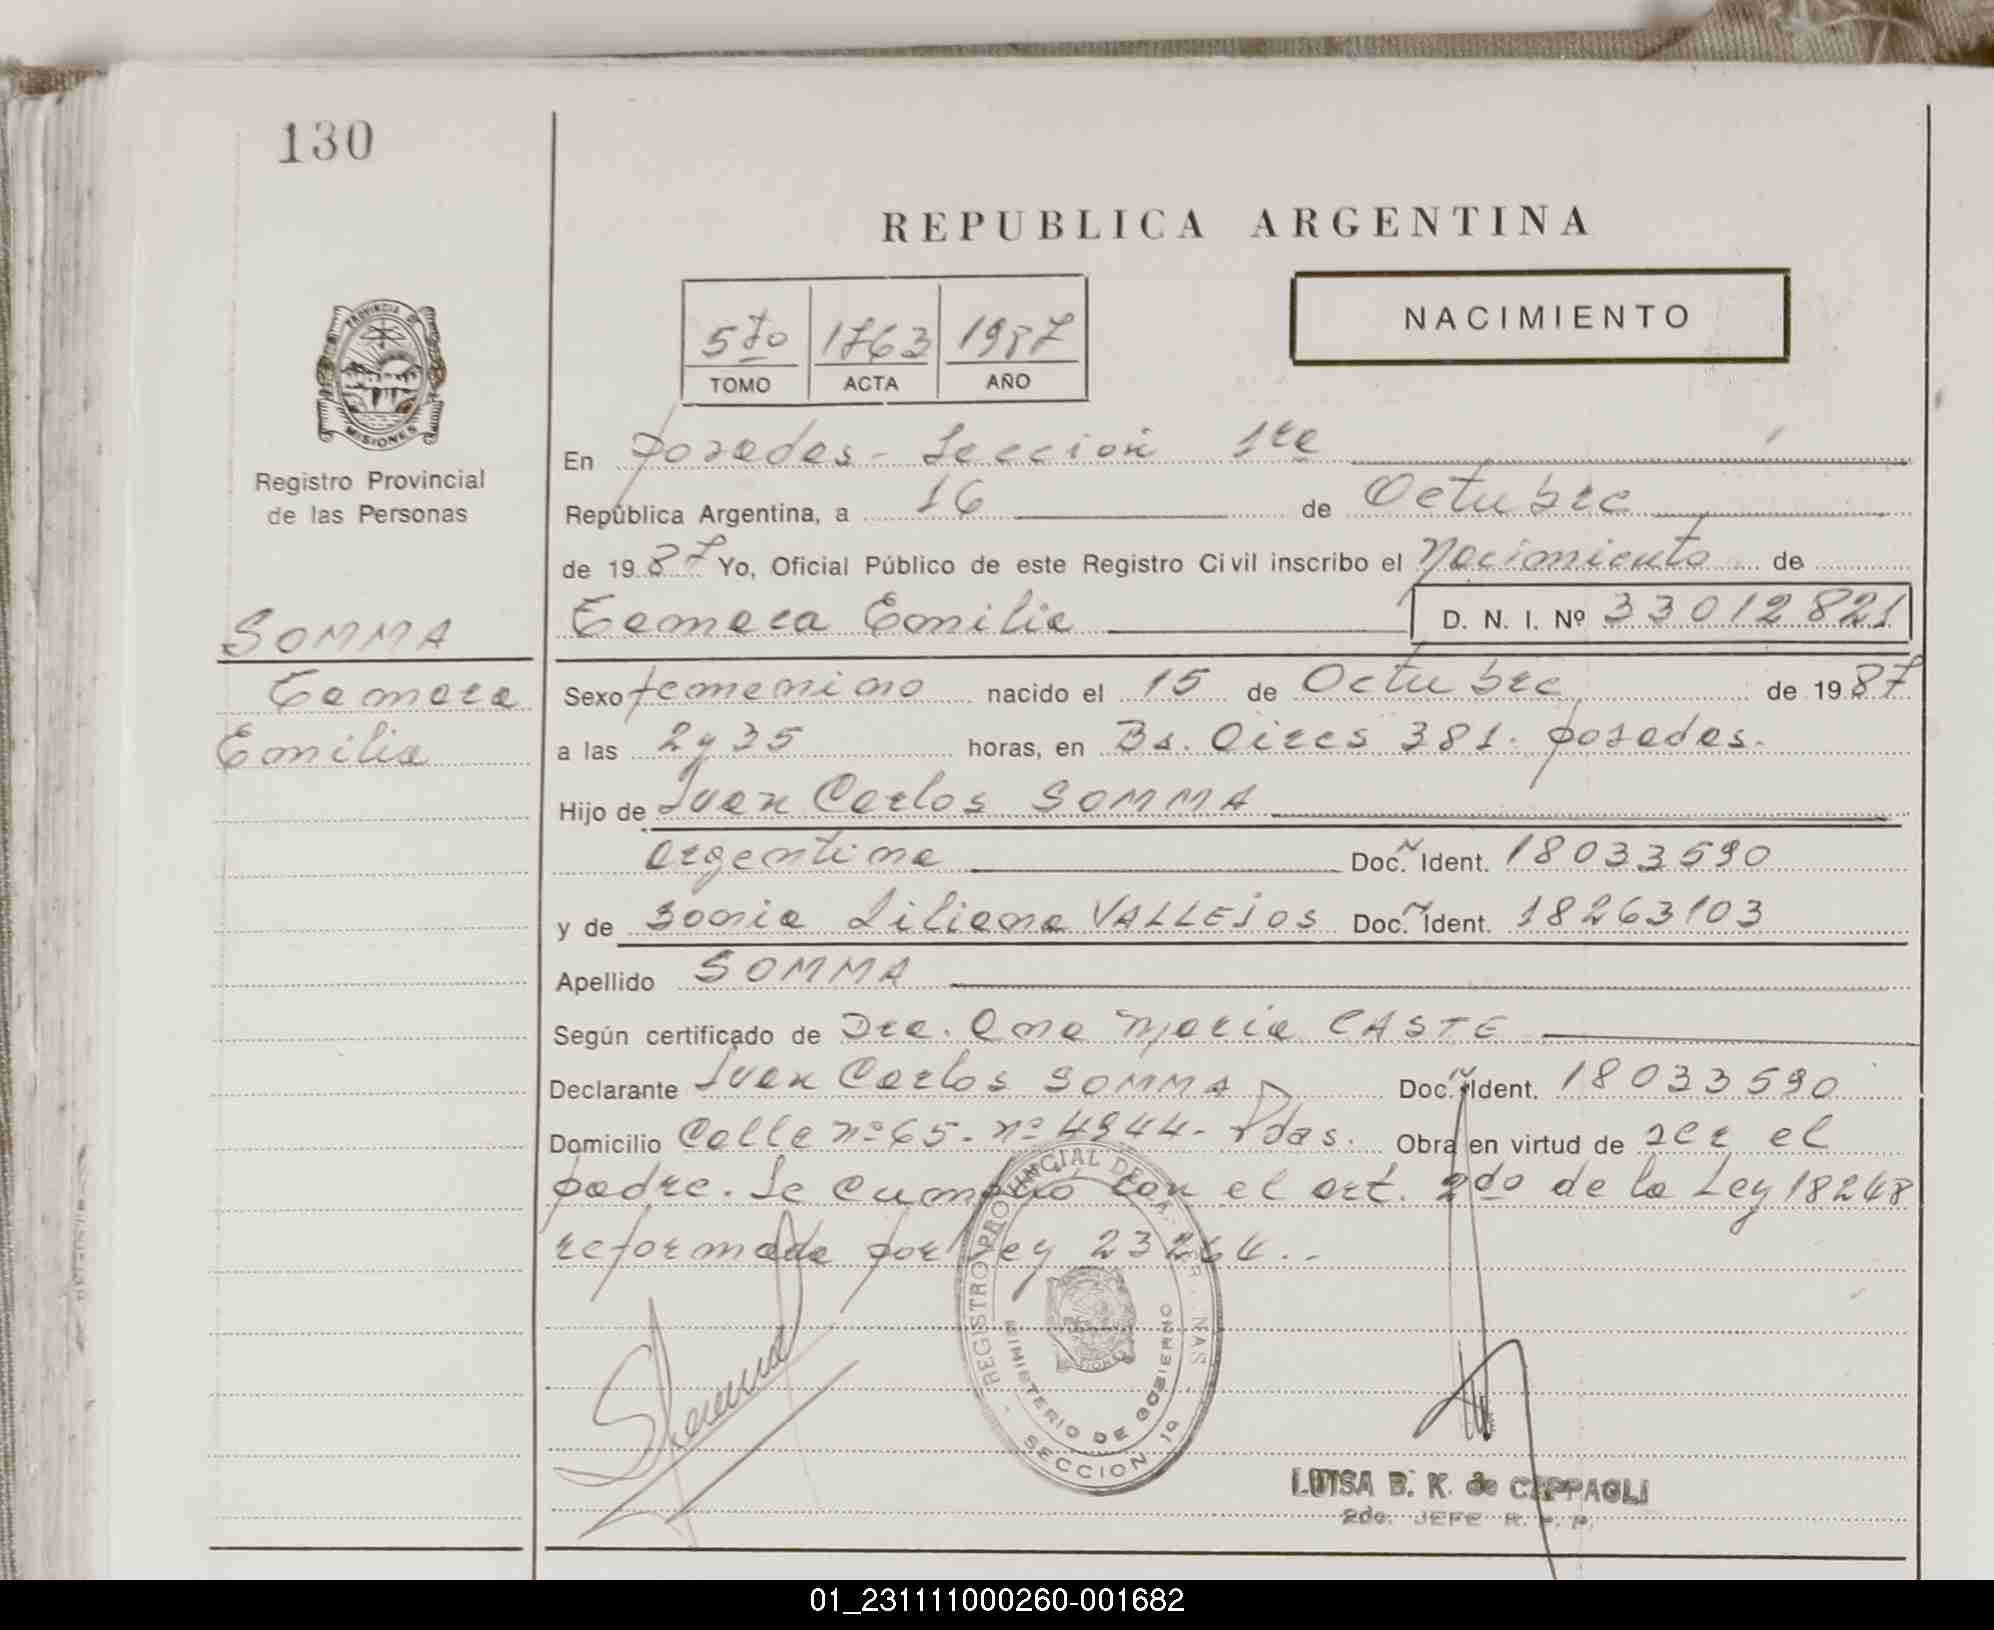 130
REPUBLICA ARGENTINA
NACIMIENTO
5to 1763 1987
TOMO ACTA AÑO
PROVINCIA DE
MISIONES
Registro Provincial
de las Personas
SOMMA
Tamara
Emilia
En Posadas - Sección 1ra
República Argentina, a 16 de Octubre
de 1987 Yo, Oficial Público de este Registro Civil inscribo el Nacimiento de
Tamara Emilia D. N. I. Nº 33012821
Sexo femenino nacido el 15 de Octubre de 1987
a las 2 y 35 horas, en Bs. Aires 381. Posadas.
Hijo de Juan Carlos SOMMA
argentina Doc. Ident. 18033590
y de Sonia Liliana VALLEJOS Doc. Ident. 18263103
Apellido SOMMA
Según certificado de Dra. Ana María CASTE
Declarante Juan Carlos SOMMA Doc. Ident. 18033590
Domicilio Calle nº 65. nº 4944- Pdas. Obra en virtud de ser el
padre. Se cumplió con el art. 2do de la Ley 18248
reformada por Ley 23264..-
REGISTRO PROVINCIAL DE
MINISTERIO DE GOBIERNO
SECCION 1º
LUISA B. K. de CIPPAGLI
2do. JEFE R. P. P.
01_231111000260-001682